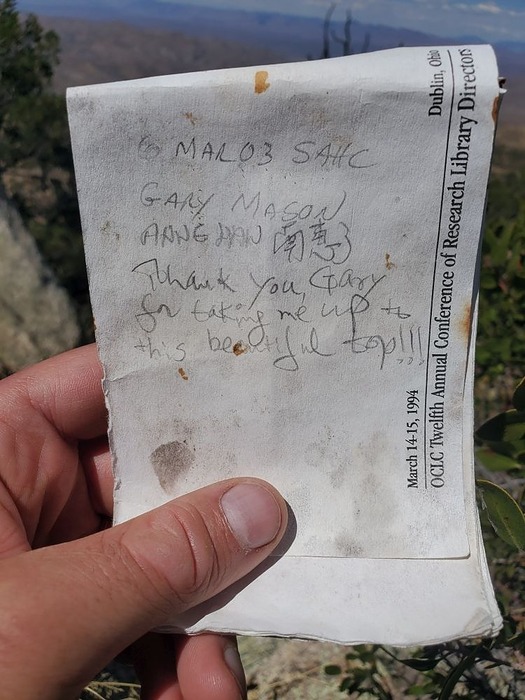 6 MAR03 SAHC
GARY MASON
ANNE HAN 南惠
Thank you, Gary
for taking me up to
this beautiful top!!!
March 14-15, 1994
OCLC Twelfth Annual Conference of Research Library Directors
Dublin, Ohio